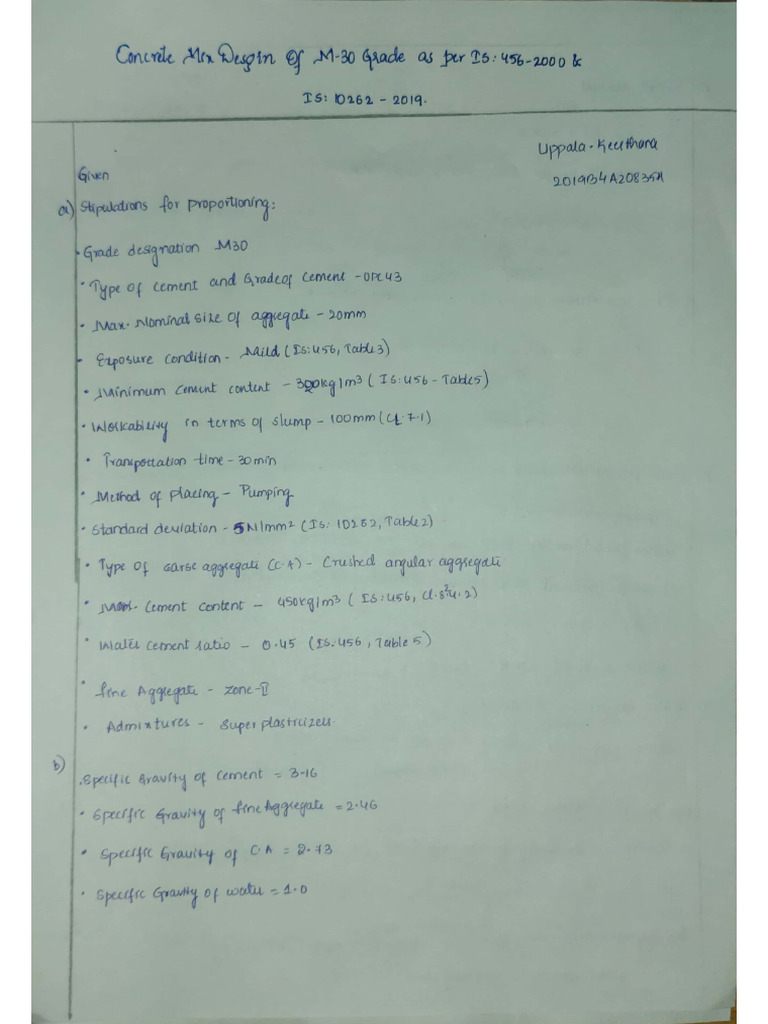 Concrete Mix Desgin Of M-30 Grade as per IS: 456-2000 &
IS: 10262 - 2019.
Uppala. Keerthana
2019B4A20835H
Given
a) Stipulations for proportioning:
• Grade designation M30
• Type of cement and Grade of Cement - OPC 43
• Max. Nominal size of aggregate - 20mm
• Exposure condition - Mild (IS:456, Table 3)
• Minimum cement content - 300kg/m³ ( IS:456 - Table 5)
• Workability in terms of slump - 100mm (CL. 7.1)
• Transportation time - 30min
• Method of placing - Pumping
• Standard deviation - 5N/mm² (IS: 10262, Table 2)
• Type of coarse aggregate (C.A) - Crushed angular aggregate
• Max. Cement content - 450kg/m³ ( IS:456, Cl. 8.2.4.2)
• Water cement ratio - 0.45 (IS:456, Table 5)
• fine Aggregate - zone-II
• Admixtures - Super plasticizers
b)
• Specific Gravity of Cement = 3.16
• Specific Gravity of fine Aggregate = 2.46
• Specific Gravity of C.A = 2.73
• Specific Gravity of water = 1.0